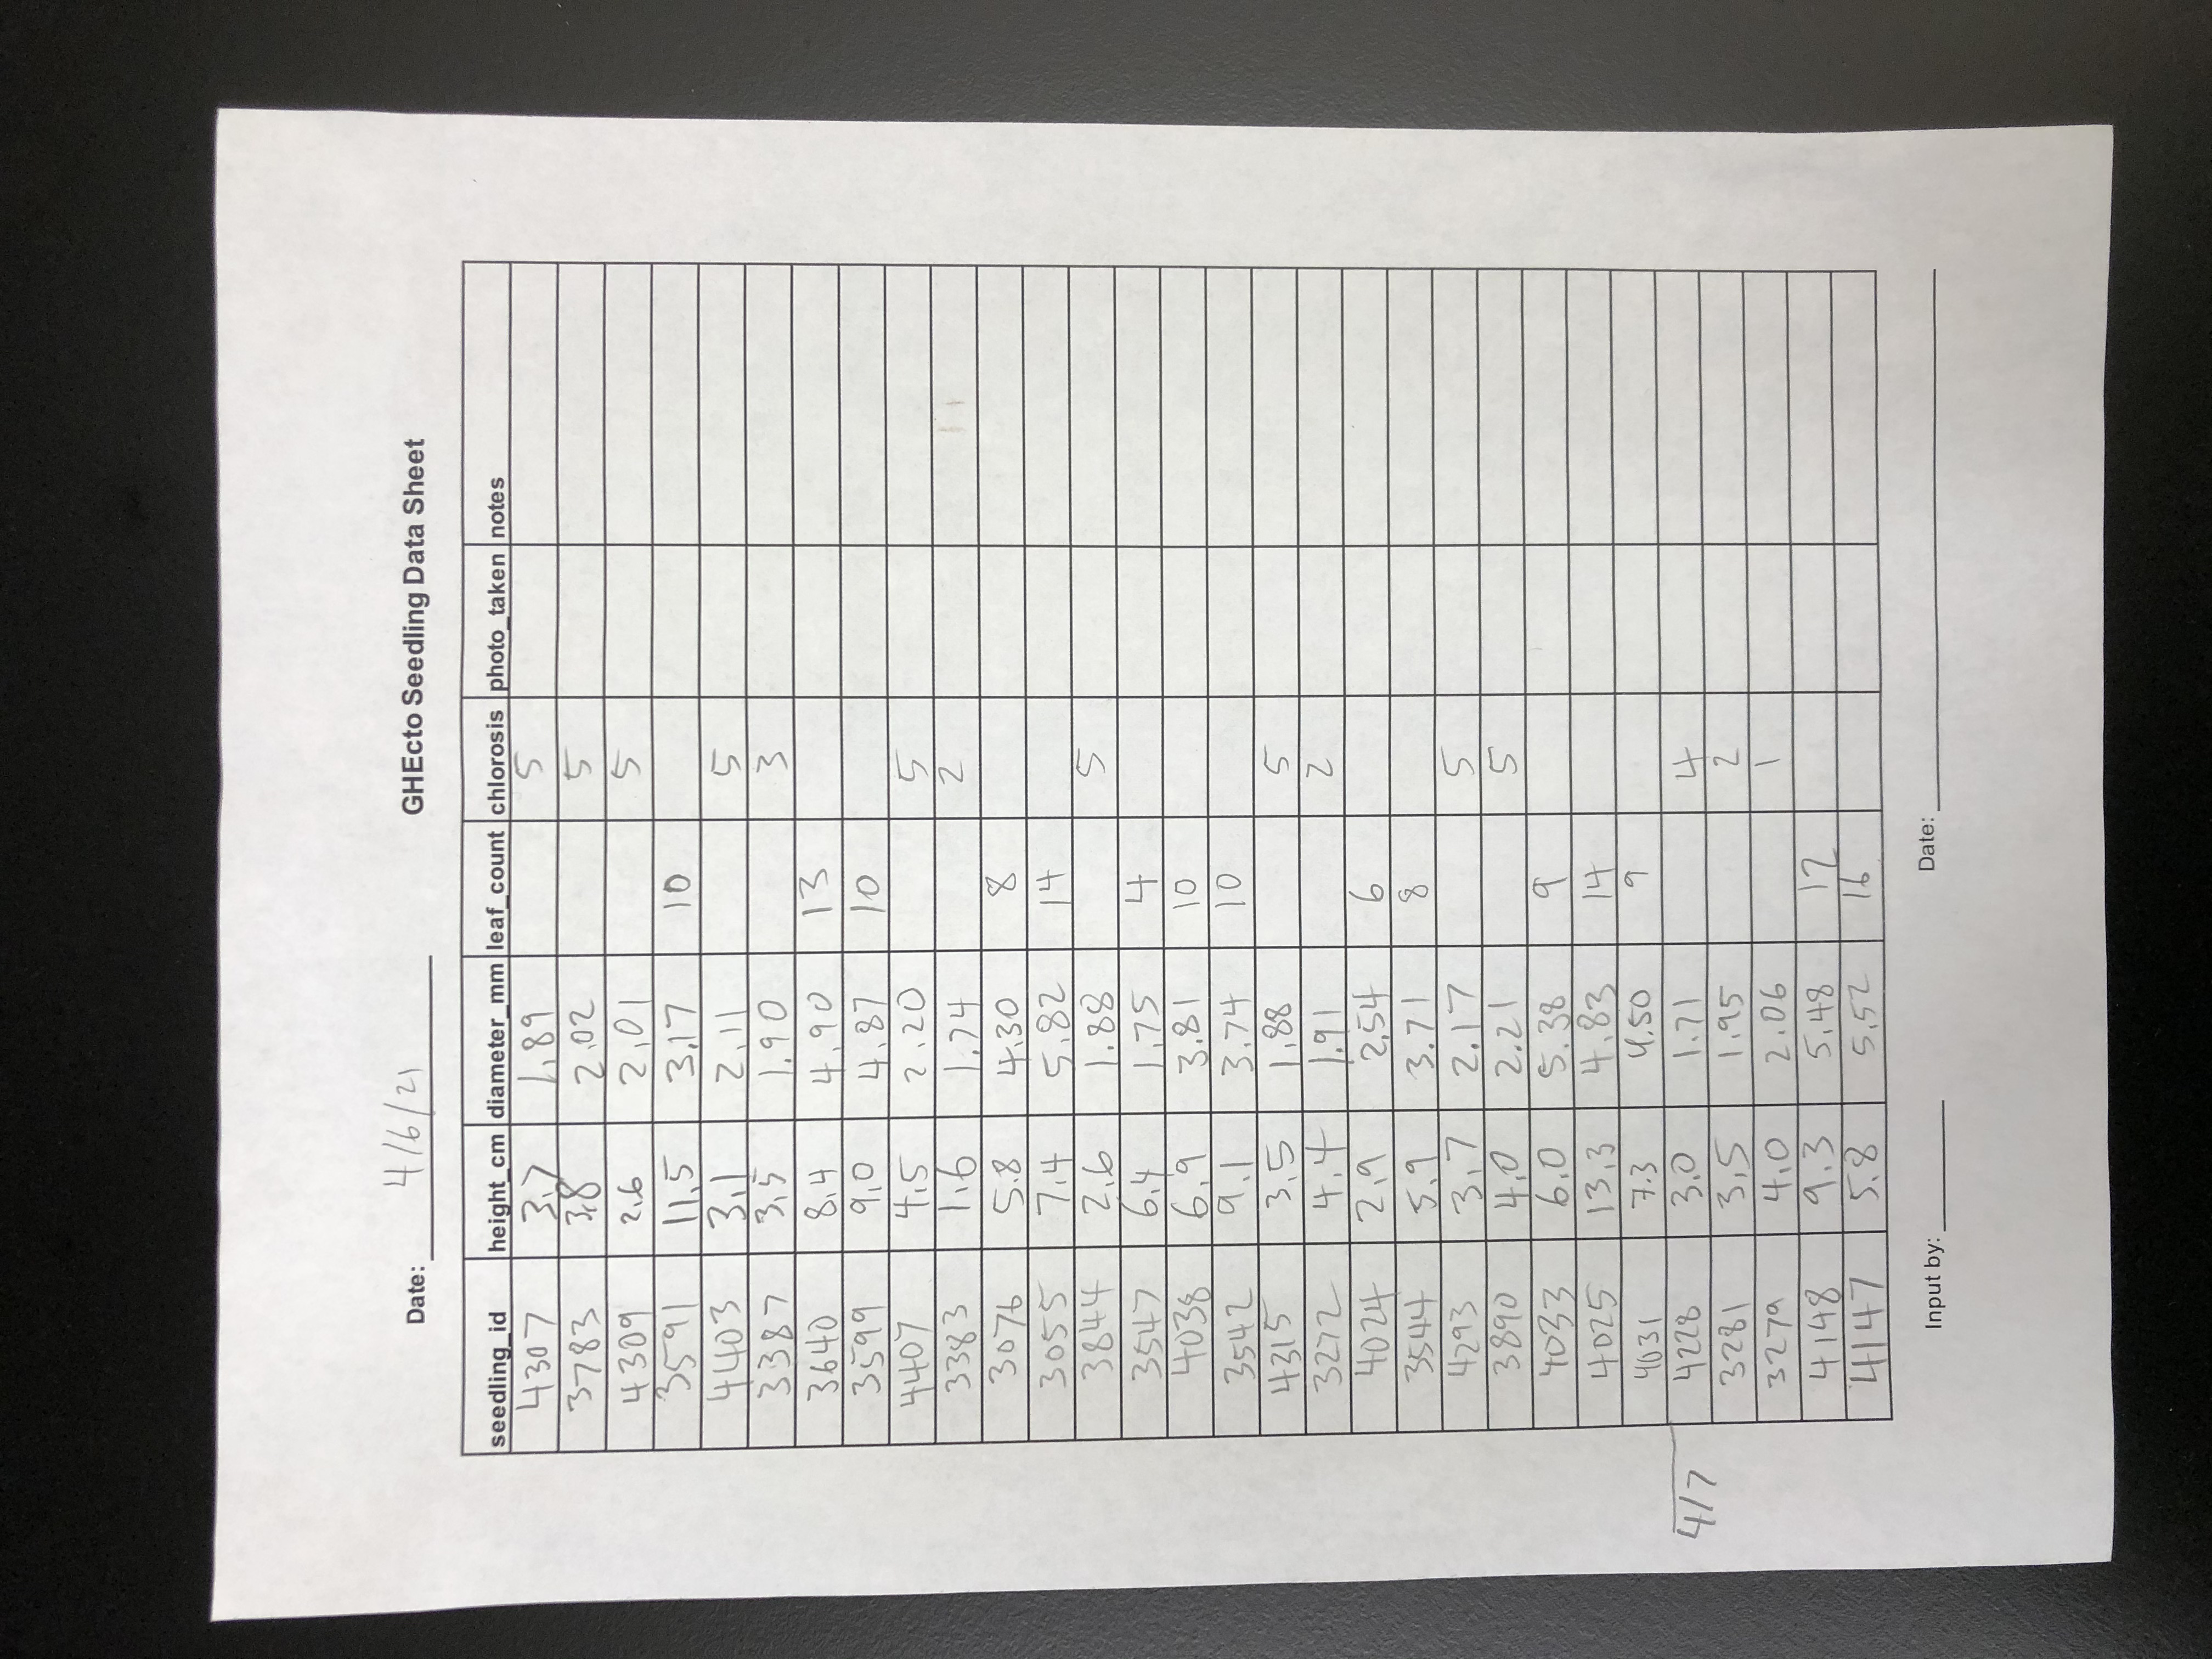 Date: 4/6/21
GHEcto Seedling Data Sheet
seedling_id height_cm diameter_mm leaf_count chlorosis photo_taken notes
4307 3.7 1.89 5
3783 3.8 2.02 5
4309 2.6 2.01 5
3591 11.5 3.17 10
4403 3.1 2.11 5
3387 3.5 1.90 3
3640 8.4 4.90 13
3599 9.0 4.87 10
4407 4.5 2.20 5
3383 1.6 1.74 2
3076 5.8 4.30 8
3055 7.4 5.82 14
3844 2.6 1.88 5
3547 6.4 1.75 4
4038 6.9 3.81 10
3542 9.1 3.74 10
4315 3.5 1.88 5
3272 4.4 1.91 2
4024 2.9 2.54 6
3544 5.9 3.71 8
4293 3.7 2.17 5
3890 4.0 2.21 5
4033 6.0 5.38 9
4025 13.3 4.83 14
4031 7.3 4.50 9
4/7 4228 3.0 1.71 4
3281 3.5 1.95 2
3279 4.0 2.06 1
4148 9.3 5.48 12
4147 5.8 5.52 16
Input by: Date: